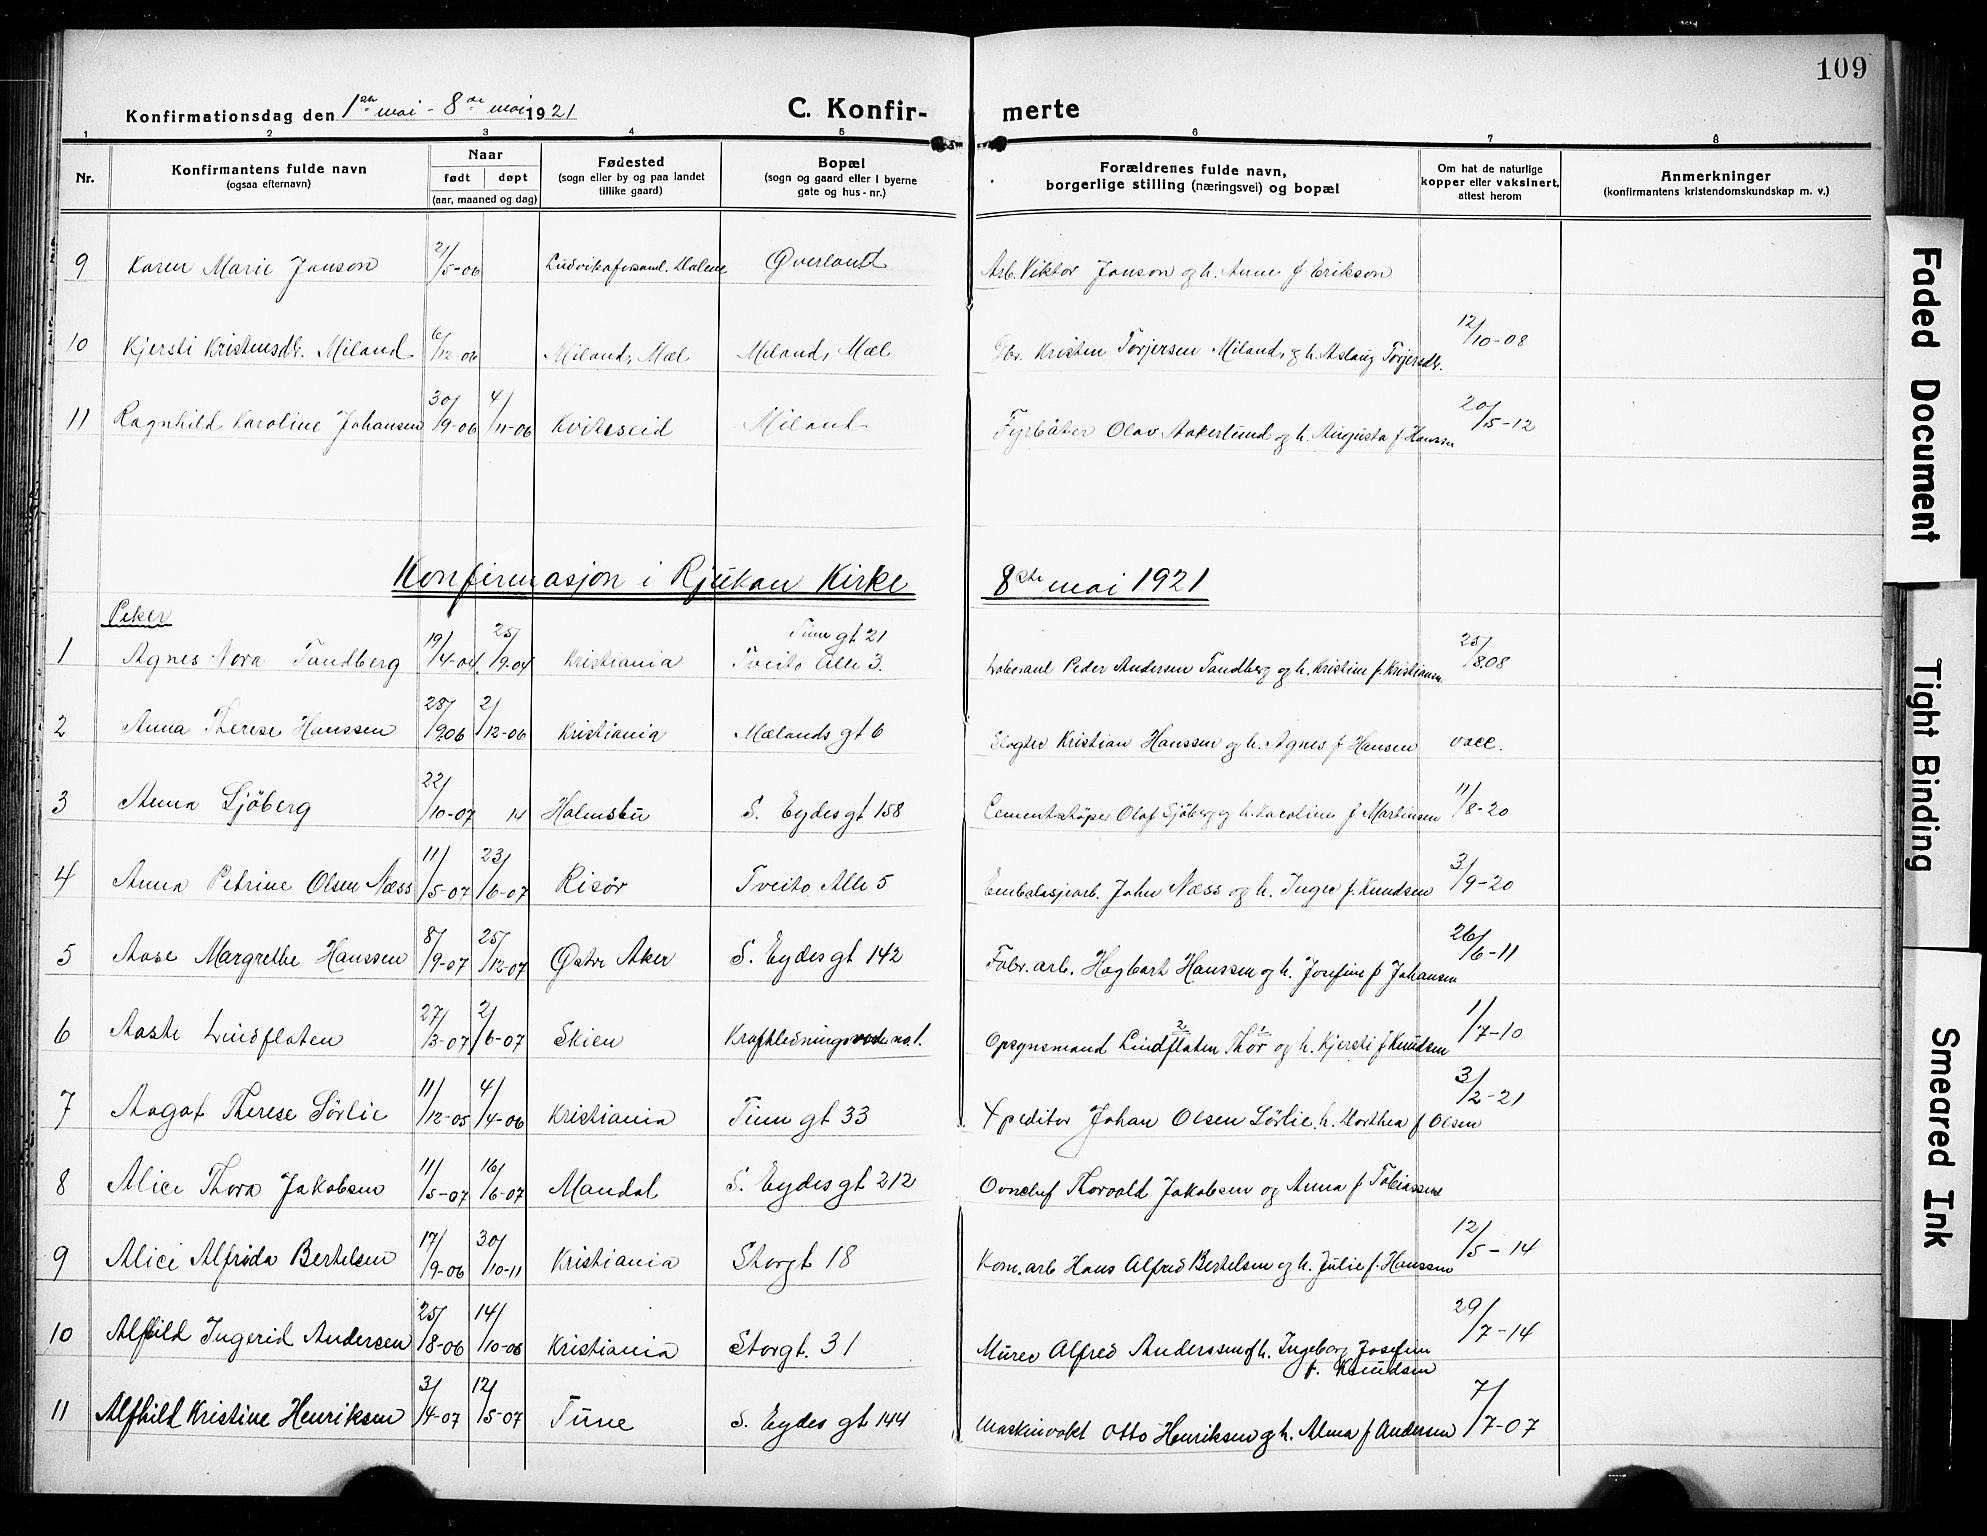 109
Konfirmationsdag den 1ste mai - 8de mai 1921 C. Konfirmerte
1 2 3 4 5 6 7 8
Nr. Konfirmantens fulde navn (ogsaa efternavn) Naar født døpt (aar, maaned og dag) Fødested (sogn eller by og paa landet tillike gaard) Bopæl (sogn og gaard eller i byerne gate og hus-nr.) Forældrenes fulde navn, borgerlige stilling (næringsvei) og bopæl Om hat de naturlige kopper eller vaksinert, attest herom Anmerkninger (konfirmantens kristendomskundskap m. v.)
9 Karen Marie Janson 21/5-06 Ludvikaforsaml. Dalene Øverland Arb. Viktor Janson og h. Anne f Erikson
10 Kjersti Kristensdtr. Miland 6/12-06 Miland, Mæl Miland, Mæl Gbr. Kristen Torjersen Miland, og h. Aslaug Torjersdtr. 12/10-08
11 Ragnhild Karoline Johansen 30/9-06 4/11-06 Kviteseid Miland Fyrbøter Olav Aakerlund og h. Augusta f Hanssen 20/5-12
Konfirmasjon i Rjukan Kirke 8de mai 1921
Piker
1 Agnes Nora Tandberg 19/4-04 25/9-04 Kristiania Tinn gt 21 Tveito Alle 3. Laborant Peder Andersen Tandberg og h. Kristine f. Kristiansen 25/8.08
2 Anna Therese Hanssen 28/9.06 2/12-06 Kristiania Mælands gt 6 Slagter Kristian Hanssen og h. Agnes f Hansen vacc.
3 Anna Sjöberg 22/10-07 14 Holmsbu S. Eydes gt 158 Cementstøper Olof Sjöberg og h. Karoline f Martinsen 11/8-20
4 Anna Petrine Olsen Næss 11/5-07 23/6-07 Risör Tveito Alle 5 Embalasjearb. John Næss og h. Inger f. Knudsen 3/9-20
5 Aase Margrethe Hanssen 8/9-07 25/12-07 Østre Aker S. Eydes gt 142 Fabr. arb. Hagbart Hanssen og h. Josefine f Johansen 26/6-11
6 Aaste Lindflaten 27/3-07 2/6-07 Skien Kraftledningsveien no 1. Opsynsmand Lindflaten Thor og h. Kjersti f Knudsen 1/7-10
7 Aagot Therese Sörlie 11/12-05 4/4-06 Kristiania Tinn gt 33 Xpeditor Johan Olsen Sörlie, h. Dorthea f Olsen 3/2-21
8 Alice Thora Jakobsen 11/5-07 16/6-07 Mandal S. Eydes gt 212 Ovnchef Thorvald Jakobsen og Anna f Tobiassen
9 Alice Alfrida Bertelsen 17/9-06 30/10-11 Kristiania Storgt 18 Kom. arb Hans Alfred Bertelsen og h. Julie f. Hanssen 12/5-14
10 Alfhild Ingerid Andersen 25/8-06 14/10-06 Kristiania Storgt. 31 Murer Alfred Anderssen og h. Ingeborg Josefine f. Knudsen 29/7-14
11 Alfhild Kristine Henriksen 3/4-07 12/5-07 Tune S. Eydes gt 144 Maskinvakt Otto Henriksen og h. Alma f Andersen 7/7-07
Faded Document
Tight Binding
Smeared Ink